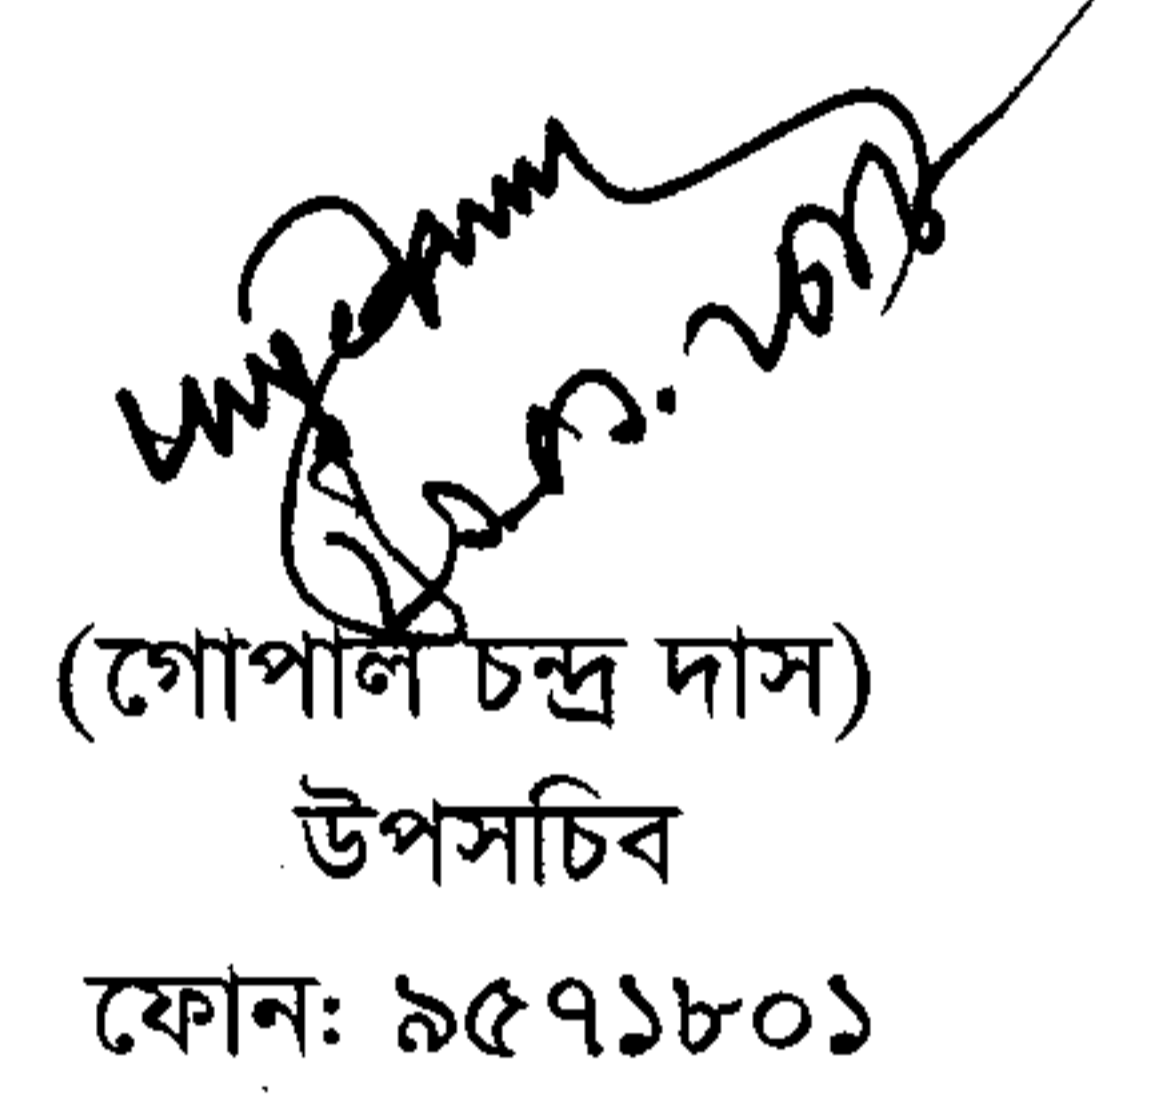 (গোপাল চন্দ্র দাস)
উপসচিব
ফোন: ৯৫৭১৮০১